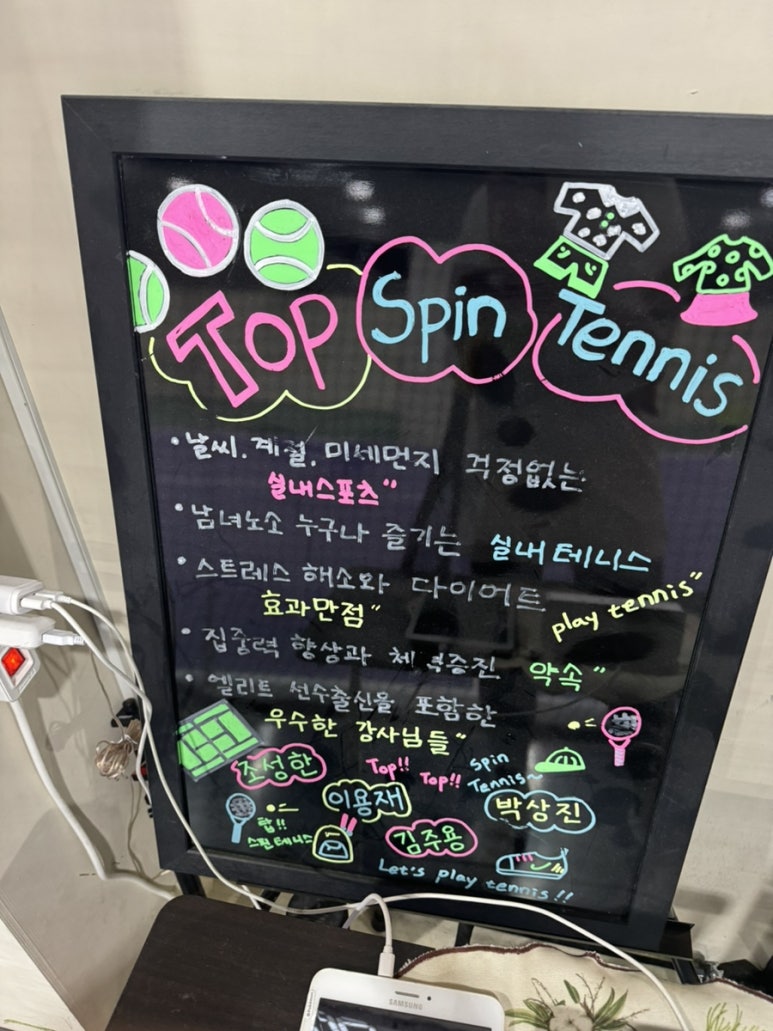 Top Spin Tennis
• 날씨. 계절. 미세먼지 걱정없는
실내스포츠"
• 남녀노소 누구나 즐기는 실내 테니스
• 스트레스 해소와 다이어트
효과만점" play tennis"
• 집중력 향상과 증진 약속"
• 엘리트 선수출신을 포함한
우수한 강사님들"
조성한 Top!! Top!! Spin Tennis~
이용재 박상진
탑!!
스핀 테니스 김주용
Let's play tennis!!
SAMSUNG